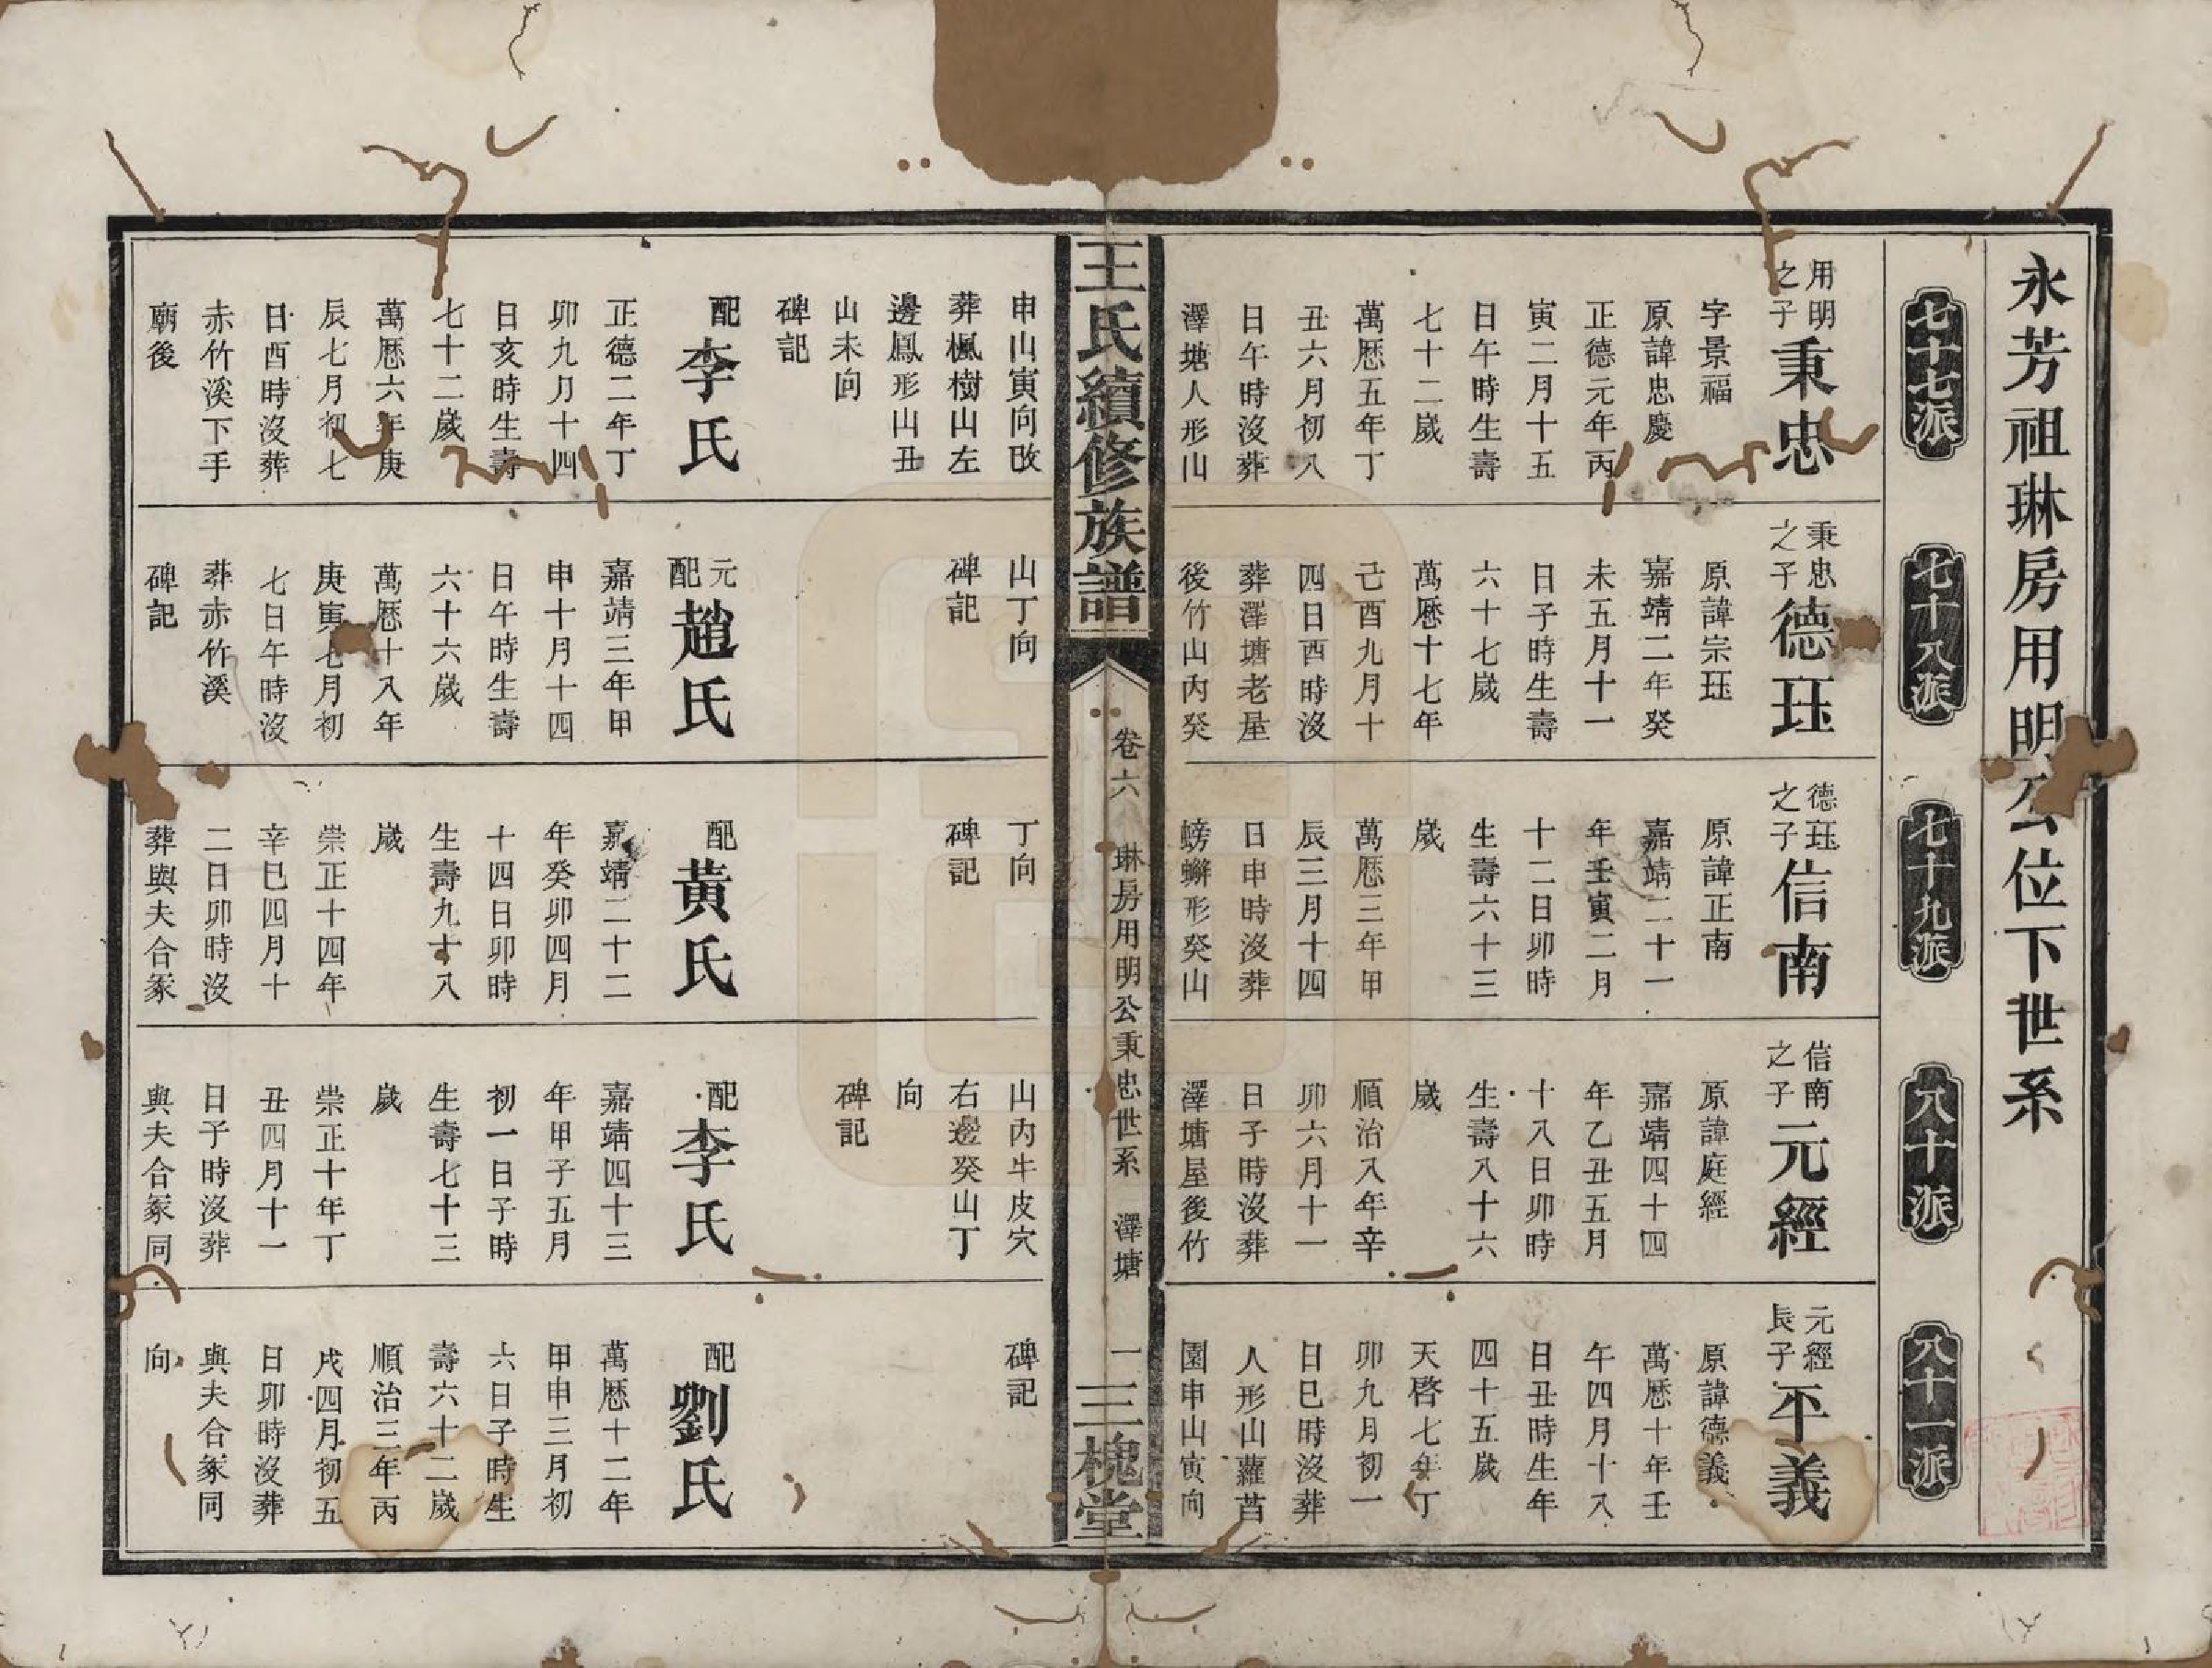 永芳祖琳房用明公位下世系
七十七派
七十八派
七十九派
八十派
八十一派
用明之子
秉忠
字景福
原諱忠慶
正德元年丙
寅二月十五
日午時生壽
七十二歲
萬歷五年丁
丑六月初八
日午時沒葬
澤塘人形山
申山寅向改
葬楓樹山左
邊鳳形山丑
山未向
碑記
配
李氏
正德二年丁
卯九月十四
日亥時生壽
七十二歲
萬歷六年庚
辰七月初七
日酉時沒葬
赤竹溪下手
廟後
秉忠之子
德珏
原諱宗珏
嘉靖二年癸
未五月十一
日子時生壽
六十七歲
萬歷十七年
己酉九月十
四日酉時沒
葬澤塘老屋
後竹山內癸
山丁向
碑記
元配
趙氏
嘉靖三年甲
申十月十四
日午時生壽
六十六歲
萬歷十八年
庚寅七月初
七日午時沒
葬赤竹溪
碑記
德珏之子
信南
原諱正南
嘉靖二十一
年壬寅二月
十二日卯時
生壽六十三
歲
萬歷三年甲
辰三月十四
日申時沒葬
螃蠏形癸山
丁向
碑記
配
黃氏
嘉靖二十二
年癸卯四月
十四日卯時
生壽九十八
歲
崇正十四年
辛巳四月十
二日卯時沒
葬與夫合冢
信南之子
元經
原諱庭經
嘉靖四十四
年乙丑五月
十八日卯時
生壽八十六
歲
順治八年辛
卯六月十一
日子時沒葬
澤塘屋後竹
山內牛皮穴
右邊癸山丁
向
碑記
配
李氏
嘉靖四十三
年甲子五月
初一日子時
生壽七十三
歲
崇正十年丁
丑四月十一
日子時沒葬
與夫合冢同
元經長子
不義
原諱德義
萬歷十年壬
午四月十八
日丑時生年
四十五歲
天啓七年丁
卯九月初一
日巳時沒葬
人形山蘿苩
園申山寅向
碑記
配
劉氏
萬歷十二年
甲申三月初
六日子時生
壽六十二歲
順治三年丙
戌四月初五
日卯時沒葬
與夫合冢同
向
王氏續修族譜
卷六
琳房用明公秉忠世系
澤塘
一
三槐堂